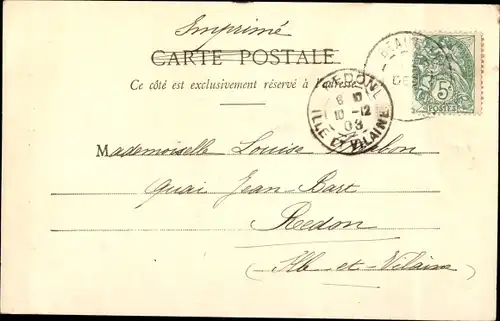 Imprimé
CARTE POSTALE
Ce côté est exclusivement réservé à l'adresse
REDON
8
10 -12
03
ILLE ET VILAINE
5
POSTES
Mademoiselle Louise
Quai Jean-Bart
Redon
(Ille-et-Vilaine